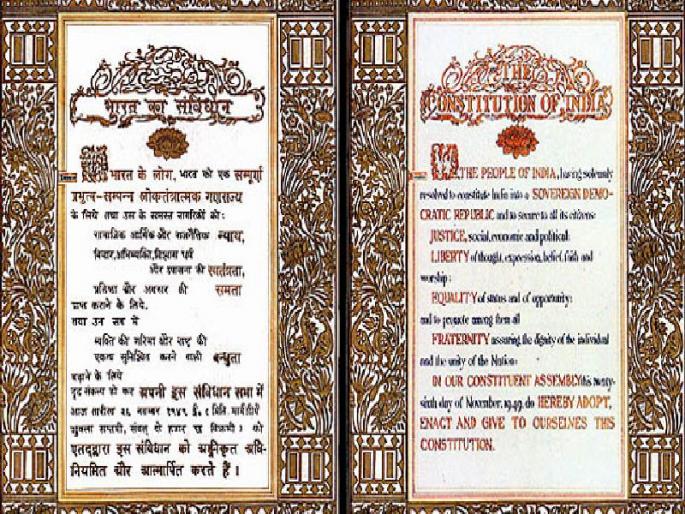 भारत का संविधान
हम भारत के लोग, भारत को एक सम्पूर्ण
प्रभुत्व-सम्पन्न लोकतंत्रात्मक गणराज्य
के लिये तथा उस के समस्त नागरिकों को:
सामाजिक आर्थिक और राजनैतिक न्याय,
विचार, अभिव्यक्ति, विश्वास धर्म
और उपासना की स्वतंत्रता,
प्रतिष्ठा और अवसर की समता
प्राप्त कराने के लिये,
तथा उन सब में
व्यक्ति की गरिमा और राष्ट्र की
एकता सुनिश्चित करने वाली बन्धुता
बढ़ाने के लिये
दृढ़संकल्प हो कर अपनी इस संविधान सभा में
आज तारीख २६ नवम्बर १९४९ ई. ( मिति मार्गशीर्ष
शुक्ला सप्तमी, संवत् दो हज़ार छ विक्रमी ) को
एतद्द्वारा इस संविधान को अङ्गीकृत अधि-
नियमित और आत्मार्पित करते हैं ।
THE
CONSTITUTION OF INDIA
WE, THE PEOPLE OF INDIA, having solemnly
resolved to constitute India into a SOVEREIGN DEMO-
CRATIC REPUBLIC and to secure to all its citizens:
JUSTICE, social, economic and political;
LIBERTY of thought, expression, belief, faith and
worship;
EQUALITY of status and of opportunity;
and to promote among them all
FRATERNITY assuring the dignity of the individual
and the unity of the Nation;
IN OUR CONSTITUENT ASSEMBLY this twenty-
sixth day of November, 1949, do HEREBY ADOPT,
ENACT AND GIVE TO OURSELVES THIS
CONSTITUTION.